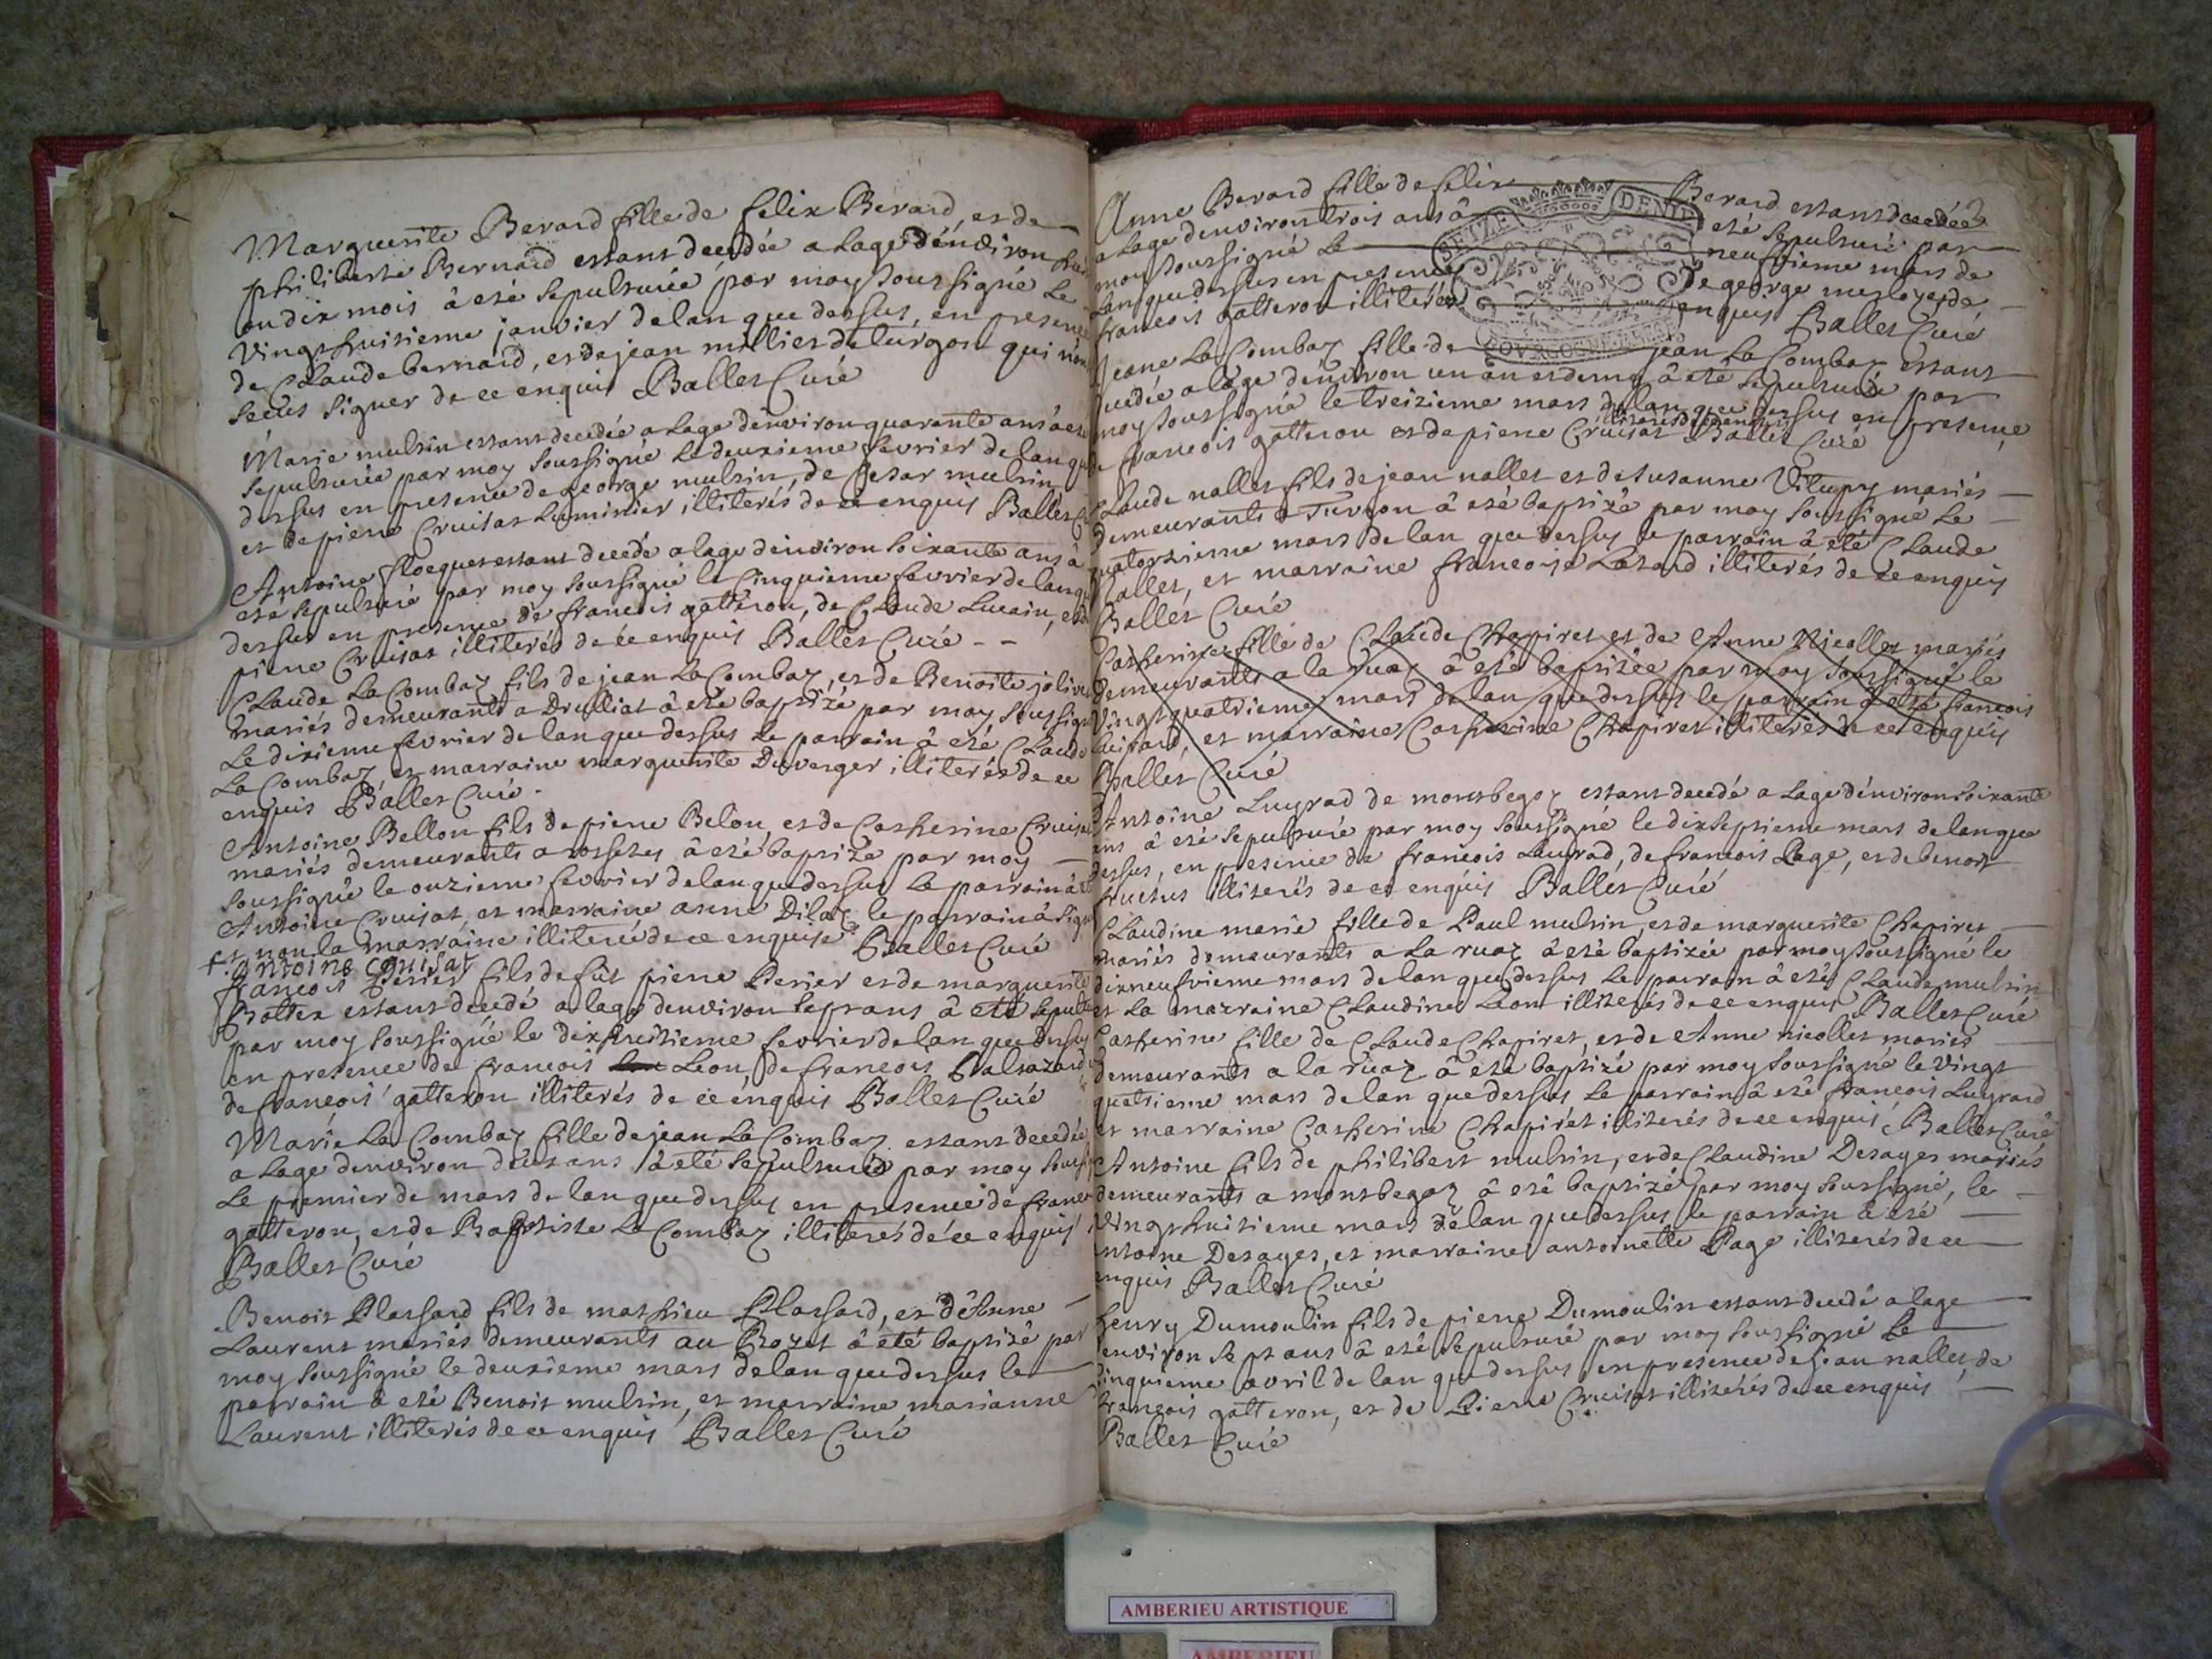 Marguerite Berard fille de felix Berard, et de
philiberte Bernard estant decedée a lage dénviron huit
ou dix mois â eté sepulturée par moy soussigné Le
Vingt huitieme janvier de lan que dessus, en presence
de Claude bernard, et de jean millier de turgon qui n'ont
sceus signer de ce enquis Ballet Curé
Marie mulsin estant decedée a lage dénviron quarante ans a eté
sepulturée par moy soussigné Le deuxieme fevrier de lan que
dessus en presence de george mulsin, de Cesar mulsin
et de piere Cruisat Luminier illiterés de ce enquis Ballet Curé
Antoine floquet estant decedé a lage dénviron soixante ans â
eté sepulturé par moy soussigné le Cinquieme fevrier de lan que
dessus en presence de francois gatteron, de Claude Lucain, et de
piere Cruisat illiterés de ce enquis Ballet Curé
Claude La Combaz fils de jean La Combaz, et de Benoite jolivet
mariés demeurants a Drulliat â eté baptizé par moy soussigné
Le dixieme fevrier de lan que dessus Le parrain â eté Claude
La Combaz, et marraine marguerite Duverger illiterés de ce
enquis Ballet Curé
Antoine Bellon fils de piere Belon, et de Catherine Cruisat
mariés demeurants a rossetes â eté baptizé par moy
soussigné le onzieme fevrier de lan que dessus Le parrain â eté
Antoine Cruisat, et marraine anne Dilaz le parrain â signé
et non la marraine illiterée de ce enquise Ballet Curé
Antoine Cruisat
francois Perier fils de fût piere Perier et de marguerite
Bottex estant decedé a lage denviron sept ans â eté sepulturé
par moy soussigné le dixhuitieme fevrier de lan que dessus
en presence de francois Leon, de francois Baltazard
de francois gatteron illiterés de ce enquis Ballet Curé
Marie La Combaz fille de jean La Combaz estant decedée
a Lage denviron deux ans â eté sepulturée par moy soussigné
Le premier de mars de lan que dessus en presence de francois
gatteron, et de Baptiste La Combaz illiterés de ce enquis
Ballet Curé
Benoit Plassard fils de mathieu Plassard, et d'Anne
Laurent mariés demeurants au Bozet â été baptizé par
moy soussigné le deuxieme mars de lan que dessus le
parrain â eté Benoit mulsin, et marraine marianne
Laurent illiterés de ce enquis Ballet Curé
Anne Berard fille de felix Berard estant decedée
a Lage denviron trois ans â eté sepulturé par
moy soussigné Le neufvieme mars de
Lan que dessus en presence De george et de
francois gatteron illiterés enquis Ballet Curé
SEIZE DENIE
Jeane La Combaz fille de jean La Combaz estant
decedée a lage denviron un an et demy â eté sepulturée par
moy soussigné le treizieme mars de lan que dessus en presence
de francois gatteron et de piere Cruisat illiterés de ce enquis Ballet Curé
Claude nallet fils de jean nallet et de susanne Vilupy mariés
demeurants a Turgon â eté baptizé par moy soussigné Le
quatorzieme mars de lan que dessus le parrain â eté Claude
nallet, et marraine francoise Lazard illiterés de ce enquis
Ballet Curé
Catherine fille de Claude Chapiret et de Anne Nicollet mariés
demeurants a la ruaz â eté baptizée par moy soussigné le
Vingt quatrieme mars de lan que dessus le parrain â eté francois
Luyrard, et marraine Catherine Chapiret illiterés de ce enquis
Ballet Curé
Antoine Luyrad de montbegoz estant decedé a Lage dénviron soixante
ans â eté sepulturé par moy soussigné le dixseptieme mars de lan que
dessus, en presence de francois Luyrad, de francois Page, et de benoit
fructus illiterés de ce enquis Ballet Curé
Claudine marie fille de Paul mulsin, et de marguerite Chapiret
mariés demeurants a La ruaz â eté baptizée par moy soussigné le
dixneufvieme mars de lan que dessus Le parrain â eté Claude mulsin
et La marraine Claudine Léon illiterés de ce enquis Ballet Curé
Catherine fille de Claude Chapiret, et de Anne nicollet mariés
demeurants a la ruaz â eté baptizé par moy soussigné le Vingt
quatrieme mars de lan que dessus Le parrain â eté francois Luyrard
et marraine Catherine Chapiret illiterés de ce enquis Ballet Curé
Antoine fils de philibert mulsin, et de Claudine Desages mariés
demeurants a montbegoz â eté baptizé par moy soussigné, le
Vingt huitieme mars de lan que dessus le parrain â eté
antoine Desages, et marraine antoinette Page illiterés de ce
enquis Ballet Curé
henry Dumoulin fils de piere Dumoulin estant decedé a lage
denviron sept ans â eté sepulturé par moy soussigné Le
cinquieme avril de lan que dessus en presence de jean nallet, de
francois gatteron, et de Piere Cruisat illiterés de ce enquis
Ballet Curé
AMBERIEU ARTISTIQUE
AMBERIEU